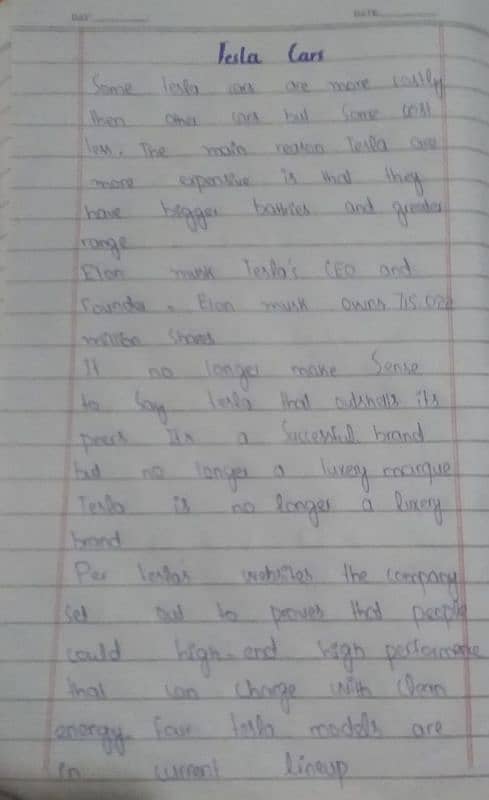 DAY
DATE
Tesla Cars
Some Tesla cars are more costly
then other cars but some cost
less. The main reason Tesla are
more expensive is that they
have bigger battries and greater
range
Elon musk Tesla's CEO and
Founder. Elon musk owns 715.022
million shares
It no longer make Sense
to Say Tesla that outsells its
peers Its a Successful brand
but no longer a luxery marque
Tesla is no longer a luxery
brand
Per Tesla's websites the company
set out to proves that people
could high-end high performance
that can charge with clean
energy. Four tesla models are
in current lineup